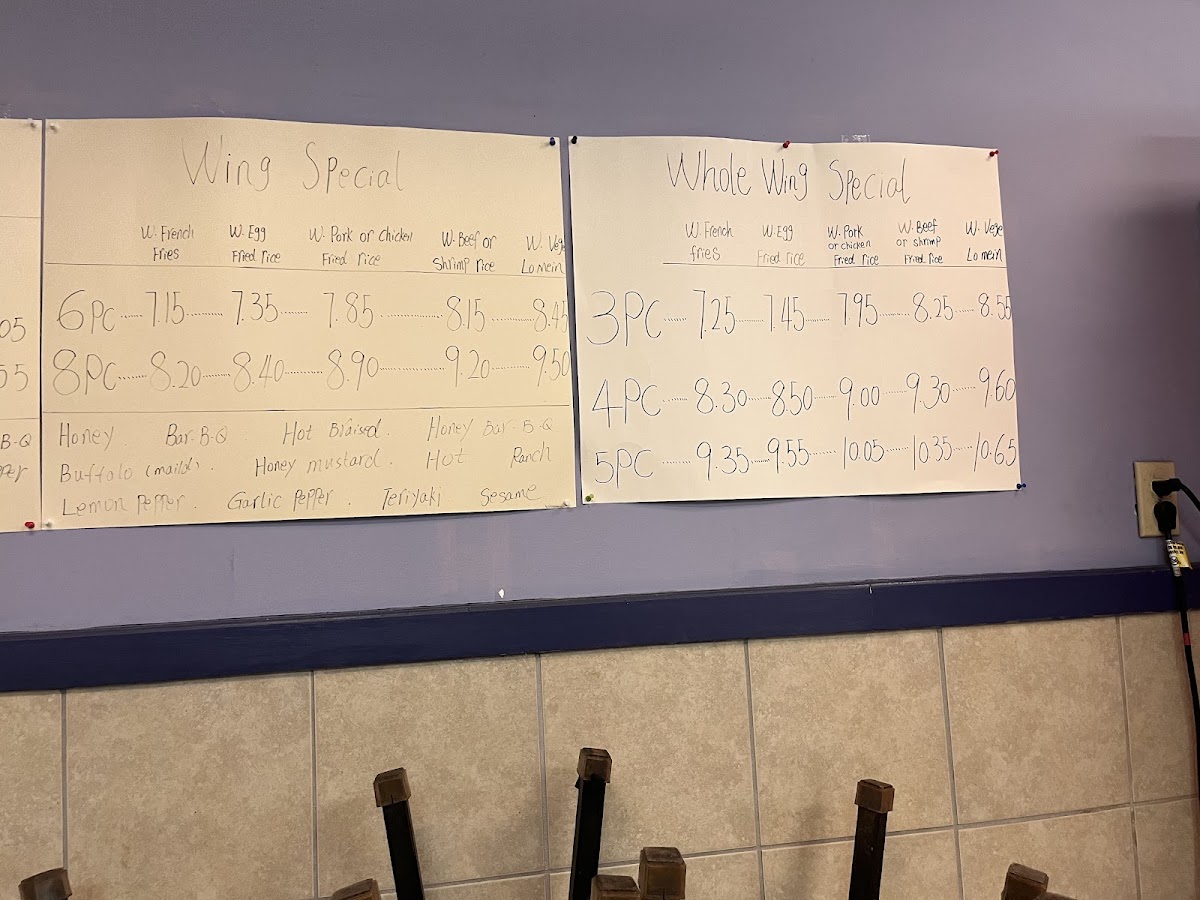 05
55
B-Q
Wing Special
W. French Fries
W. Egg Fried rice
W. Pork or Chicken Fried rice
W. Beef or Shrimp rice
W. Vege Lo mein
6PC 7.15 7.35 7.85 8.15 8.45
8PC 8.20 8.40 8.90 9.20 9.50
Honey Bar-B-Q Hot Braised Honey Bar-B-Q
Buffalo (maild). Honey mustard. Hot Ranch
Lemon Pepper. Garlic Pepper. Teriyaki Sesame
Whole Wing Special
W. French fries
W. Egg Fried rice
W. Pork or chicken Fried rice
W. Beef or shrimp Fried rice
W. Vege Lo mein
3PC 7.25 7.45 7.95 8.25 8.55
4PC 8.30 8.50 9.00 9.30 9.60
5PC 9.35 9.55 10.05 10.35 10.65